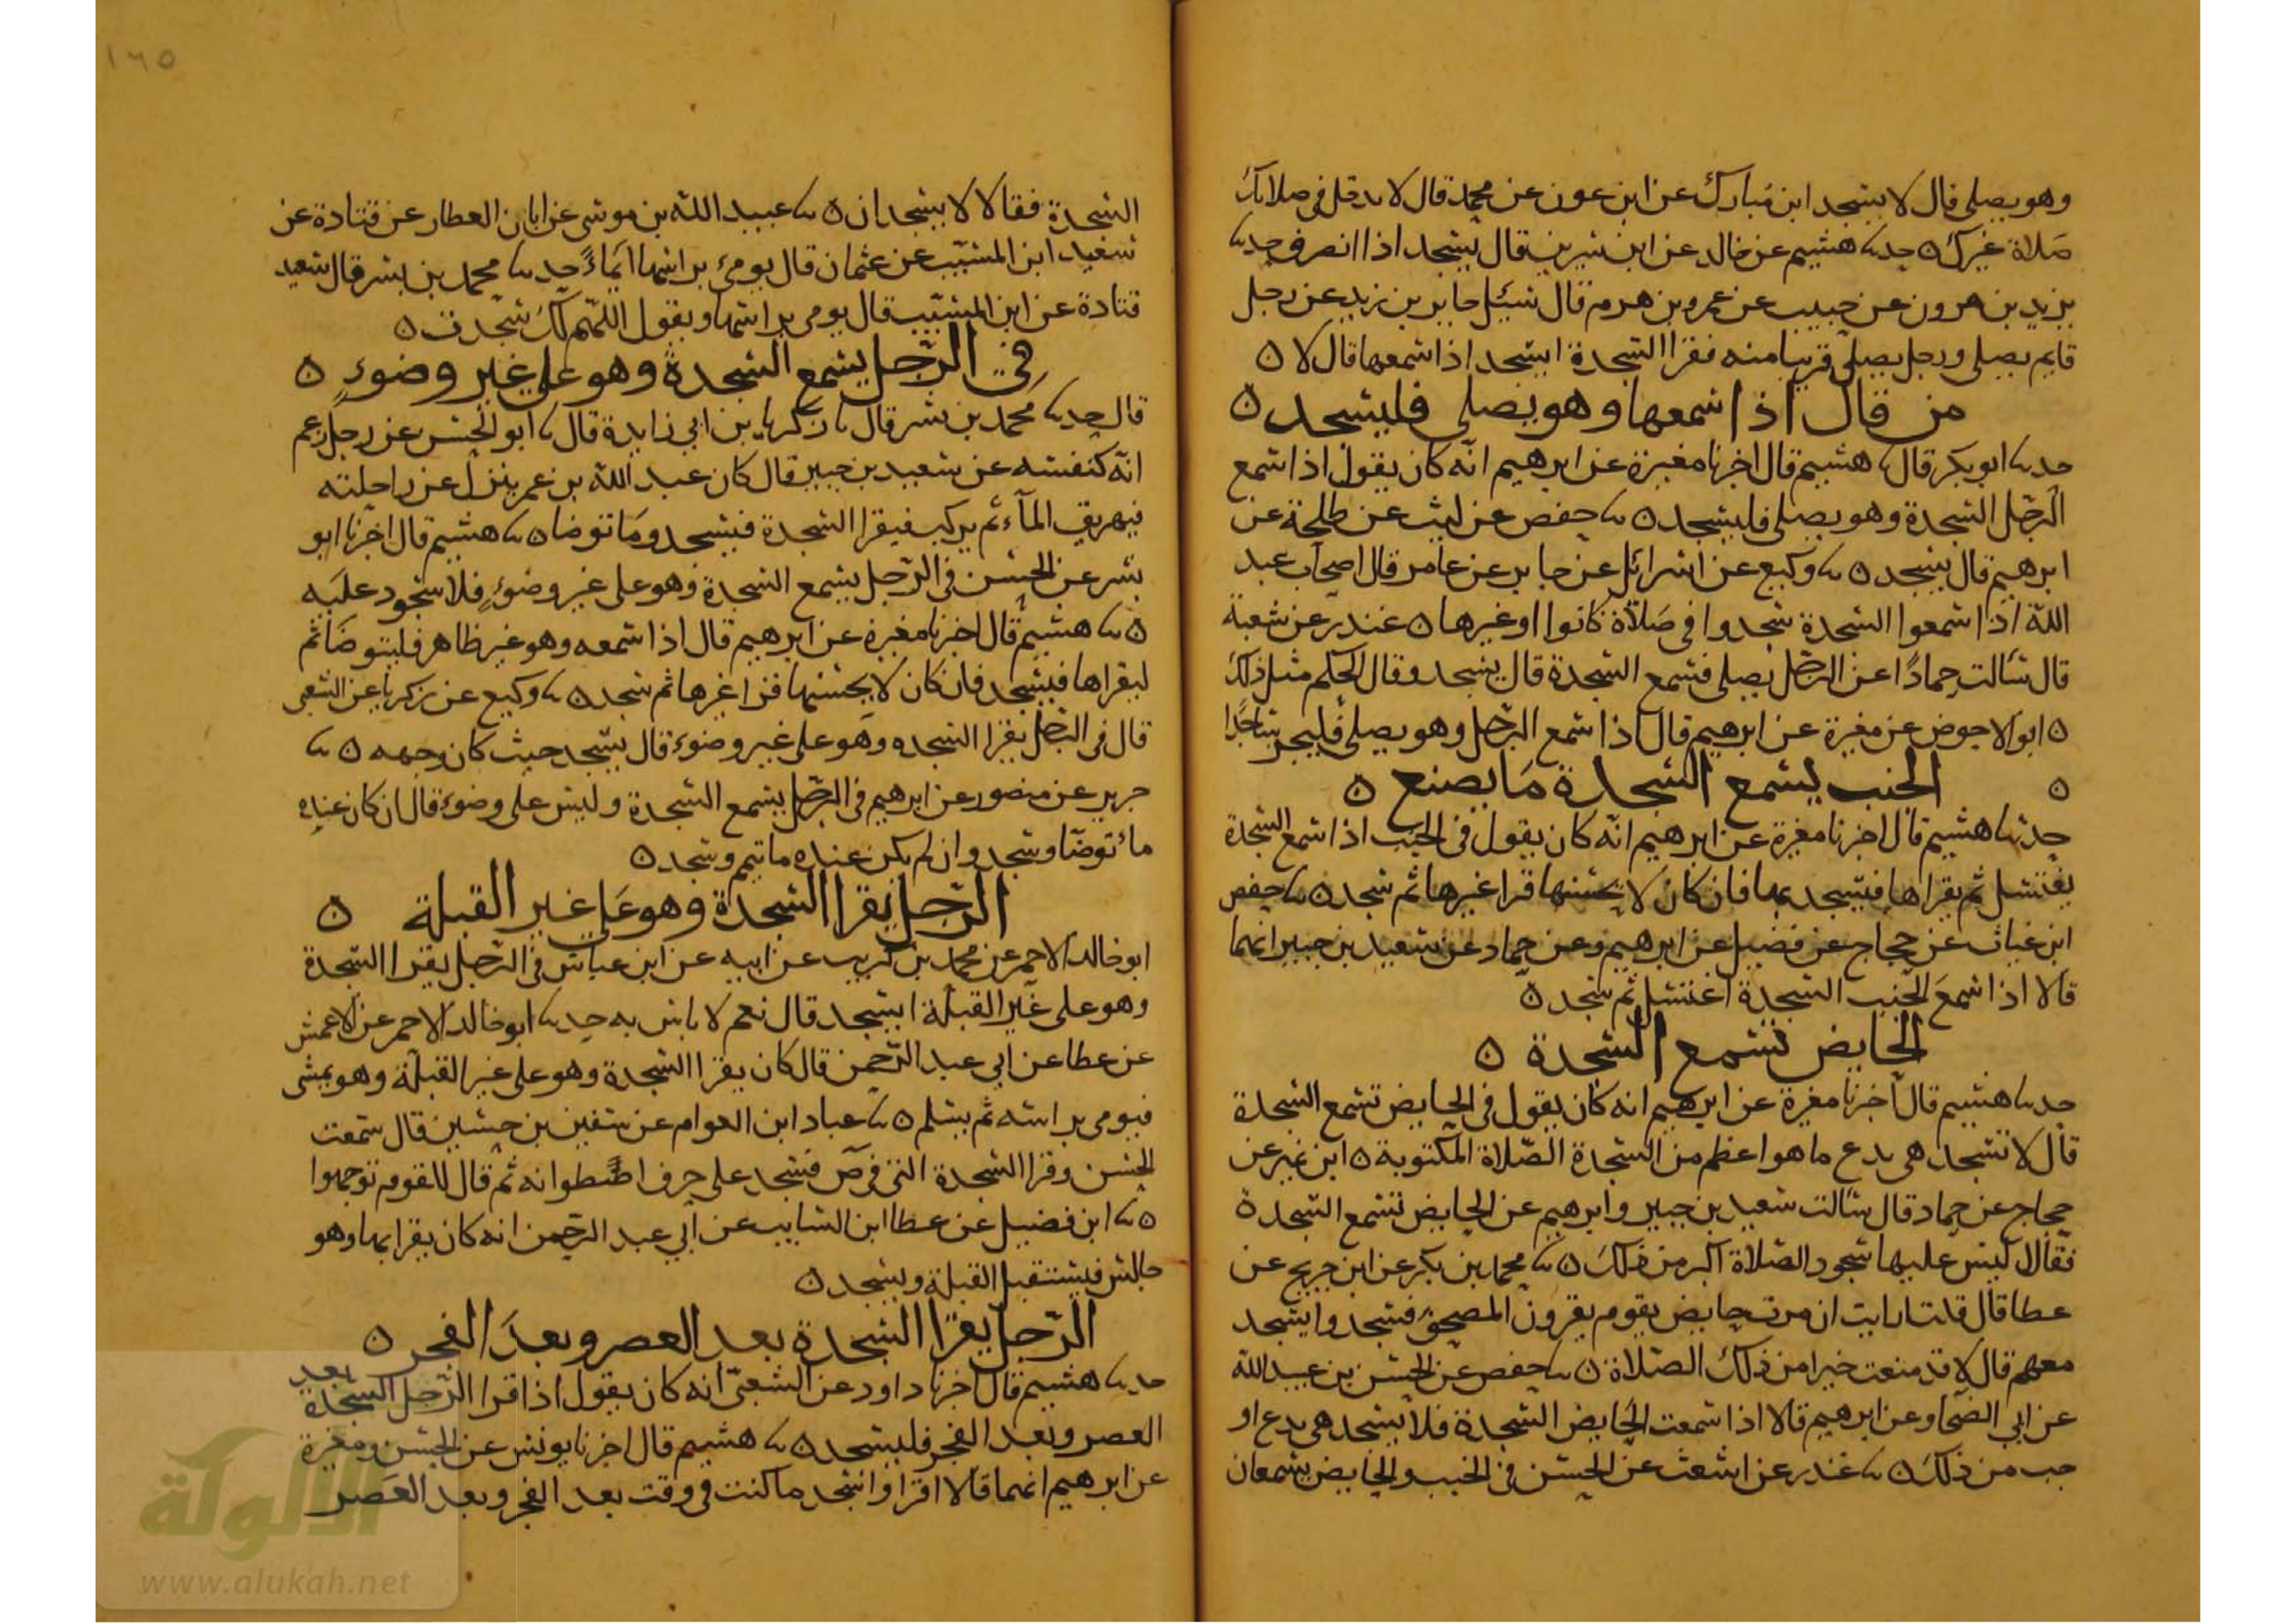 وهو يصلي قال لا يسجد ابن مبارك عن ابن عون عن محمد قال لا تدخل في صلاتك
صلاة غيرك ه حدثنا هشيم عن خالد عن ابن سيرين قال يسجد اذا انصرف حدثنا
يزيد بن هرون عن حبيب عن عمرو بن هرم قال سئل جابر بن زيد عن رجل
قايم يصلي ورجل يصلي قريبا منه فقرا السجدة ايسجد اذا سمعها قال لا ه
من قال اذا سمعها وهو يصلي فليسجد ه
حدثنا ابو بكر قال نا هشيم قال اخبرنا مغيرة عن ابرهيم انه كان يقول اذا سمع
الرجل السجدة وهو يصلي فليسجد ه نا حفص عن ليث عن طلحة عن
ابرهيم قال يسجد ه نا وكيع عن اسرائل عن جابر عن عامر قال اصحاب عبد
الله اذا سمعوا السجدة سجدوا في صلاة كانوا او غيرها ه غندر عن شعبة
قال سالت حمادا عن الرجل يصلي فسمع السجدة قال يسجد وقال الحكم مثل ذلك
ه ابو الاحوص عن مغيرة عن ابرهيم قال اذا سمع الرجل وهو يصلي فليخر ساجدا
ه الجنب يسمع السجدة ما يصنع ه
حدثنا هشيم قال اخبرنا مغيرة عن ابرهيم انه كان يقول في الجنب اذا سمع السجدة
يغتسل ثم يقراها فيسجد بها فان كان لا يحسنها قرا غيرها ثم سجد ه نا حفص
ابن غياث عن حجاج عن فضيل عن ابرهيم وعن حماد عن سعيد بن جبير انهما
قالا اذا سمع الجنب السجدة اغتسل ثم سجد ه
الحايض تسمع السجدة ه
حدثنا هشيم قال اخبرنا مغيرة عن ابرهيم انه كان يقول في الحايض تسمع السجدة
قال لا تسجد هي تدع ما هو اعظم من السجدة الصلاة المكتوبة ه ابن نمير عن
حجاج عن حماد قال سالت سعيد بن جبير وابرهيم عن الحايض تسمع السجدة
فقالا ليس عليها سجود الصلاة اكبر من ذلك ه نا محمد بن بكر عن ابن جريج عن
عطا قال قلت ارايت ان مرت حايض بقوم يقرون المصحف فسجدوا ايسجد
معهم قال لا قد منعت خيرا من ذلك الصلاة ه نا حفص عن الحسن بن عبيد الله
عن ابي الضحا وعن ابرهيم قالا اذا سمعت الحايض السجدة فلا يسجد هي تدع او
جب من ذلك ه نا غندر عن اشعث عن الحسن في الجنب والحايض يسمعان
١٦٥
السجدة فقالا لا يسجدان ه نا عبيد الله بن موسى عن ابان العطار عن قتادة عن
سعيد ابن المسيب عن عثمان قال يومئ براسها ايماء حدثنا محمد بن بشر قال سعيد
قتادة عن ابن المسيب قال يومي براسها ويقول اللهم لك سجدت ه
في الرجل يسمع السجدة وهو على غير وضوء ه
قال حدثنا محمد بن بشر قال نا زكريا بن ابي زايدة قال نا ابو الحسن عن رجل زعم
انه كنفسه عن سعيد بن جبير قال كان عبد الله بن عمر ينزل عن راحلته
فيهريق المآء ثم يركب فيقرا السجدة فيسجد وما توضا ه نا هشيم قال اخبرنا ابو
بشر عن الحسن في الرجل يسمع السجدة وهو على غير وضوء فلا سجود عليه
ه نا هشيم قال اخبرنا مغيرة عن ابرهيم قال اذا سمعه وهو غير طاهر فليتوضا ثم
ليقراها فيسجد فان كان لا يحسنها قرا غيرها ثم سجد ه نا وكيع عن زكريا عن الشعبي
قال في الرجل يقرا السجده وهو على غير وضوء قال يسجد حيث كان وجهه ه نا
جرير عن منصور عن ابرهيم في الرجل يسمع السجدة وليس على وضوء قال ان كان عنده
ماء توضا وسجد وان لم يكن عنده ما تيمم وسجد ه
الرجل يقرا السجدة وهو على غير القبلة ه
ابو خالد الاحمر عن محمد بن كريب عن ابيه عن ابن عباس في الرجل يقرا السجدة
وهو على غير القبلة ايسجد قال نعم لا باس به حدثنا ابو خالد الاحمر عن الاعمش
عن عطا عن ابي عبد الرحمن قال كان يقرا السجدة وهو على غير القبلة وهو يمشي
فيومي براسه ثم يسلم ه نا عباد ابن العوام عن سفين بن حسين قال سمعت
الحسن وقرا السجدة التي في ص فسجد على حرف اسطوانه ثم قال للقوم توجهوا
ه نا ابن فضيل عن عطا ابن السايب عن ابي عبد الرحمن انه كان يقرا بها وهو
جالس فيستقبل القبلة ويسجد ه
الرجل يقرا السجدة بعد العصر وبعد الفجر ه
حدثنا هشيم قال اخبرنا داود عن الشعبي انه كان يقول اذا قرا الرجل السجدة بعد
العصر وبعد الفجر فليسجد ه نا هشيم قال اخبرنا يونس عن الحسن ومغيرة
عن ابرهيم انهما قالا اقرا واسجد ما كنت في وقت بعد الفجر وبعد العصر
الألوكة
www.alukah.net